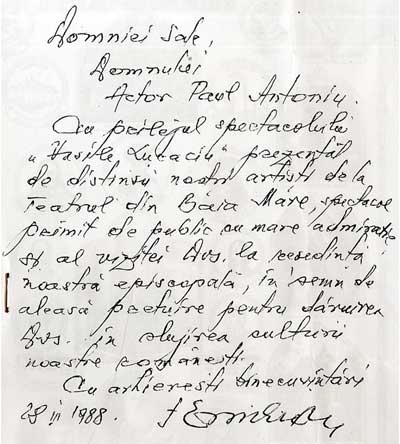 Domniei Sale,
Domnului
Actor Paul Antoniu.
Cu prilejul spectacolului
„Vasile Lucaciu" prezentat
de distinșii noștri artiști de la
Teatrul din Baia Mare, spectacol
primit de public cu mare admirație
și al vizitei Dvs. la reședința
noastră episcopală, în semn de
aleasă prețuire pentru dăruirea
Dvs. în slujirea culturii
noastre românești.
Cu arhierești binecuvîntări
28 III 1988.